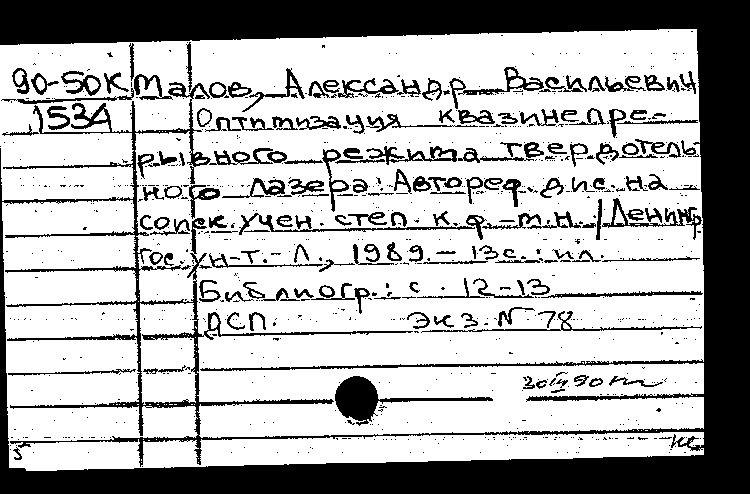 90-50К Малов, Александр Васильевич
1534 Оптимизация квазинепре-
рывного режима твердотель
ного лазера: Автореф. дис. на
соиск. учен. степ. к.ф.-м.н. / Ленингр
гос. ун-т. - Л., 1989. - 13 с. : ил.
Библиогр.: с. 12-13
ДСП. Экз. N 78
5